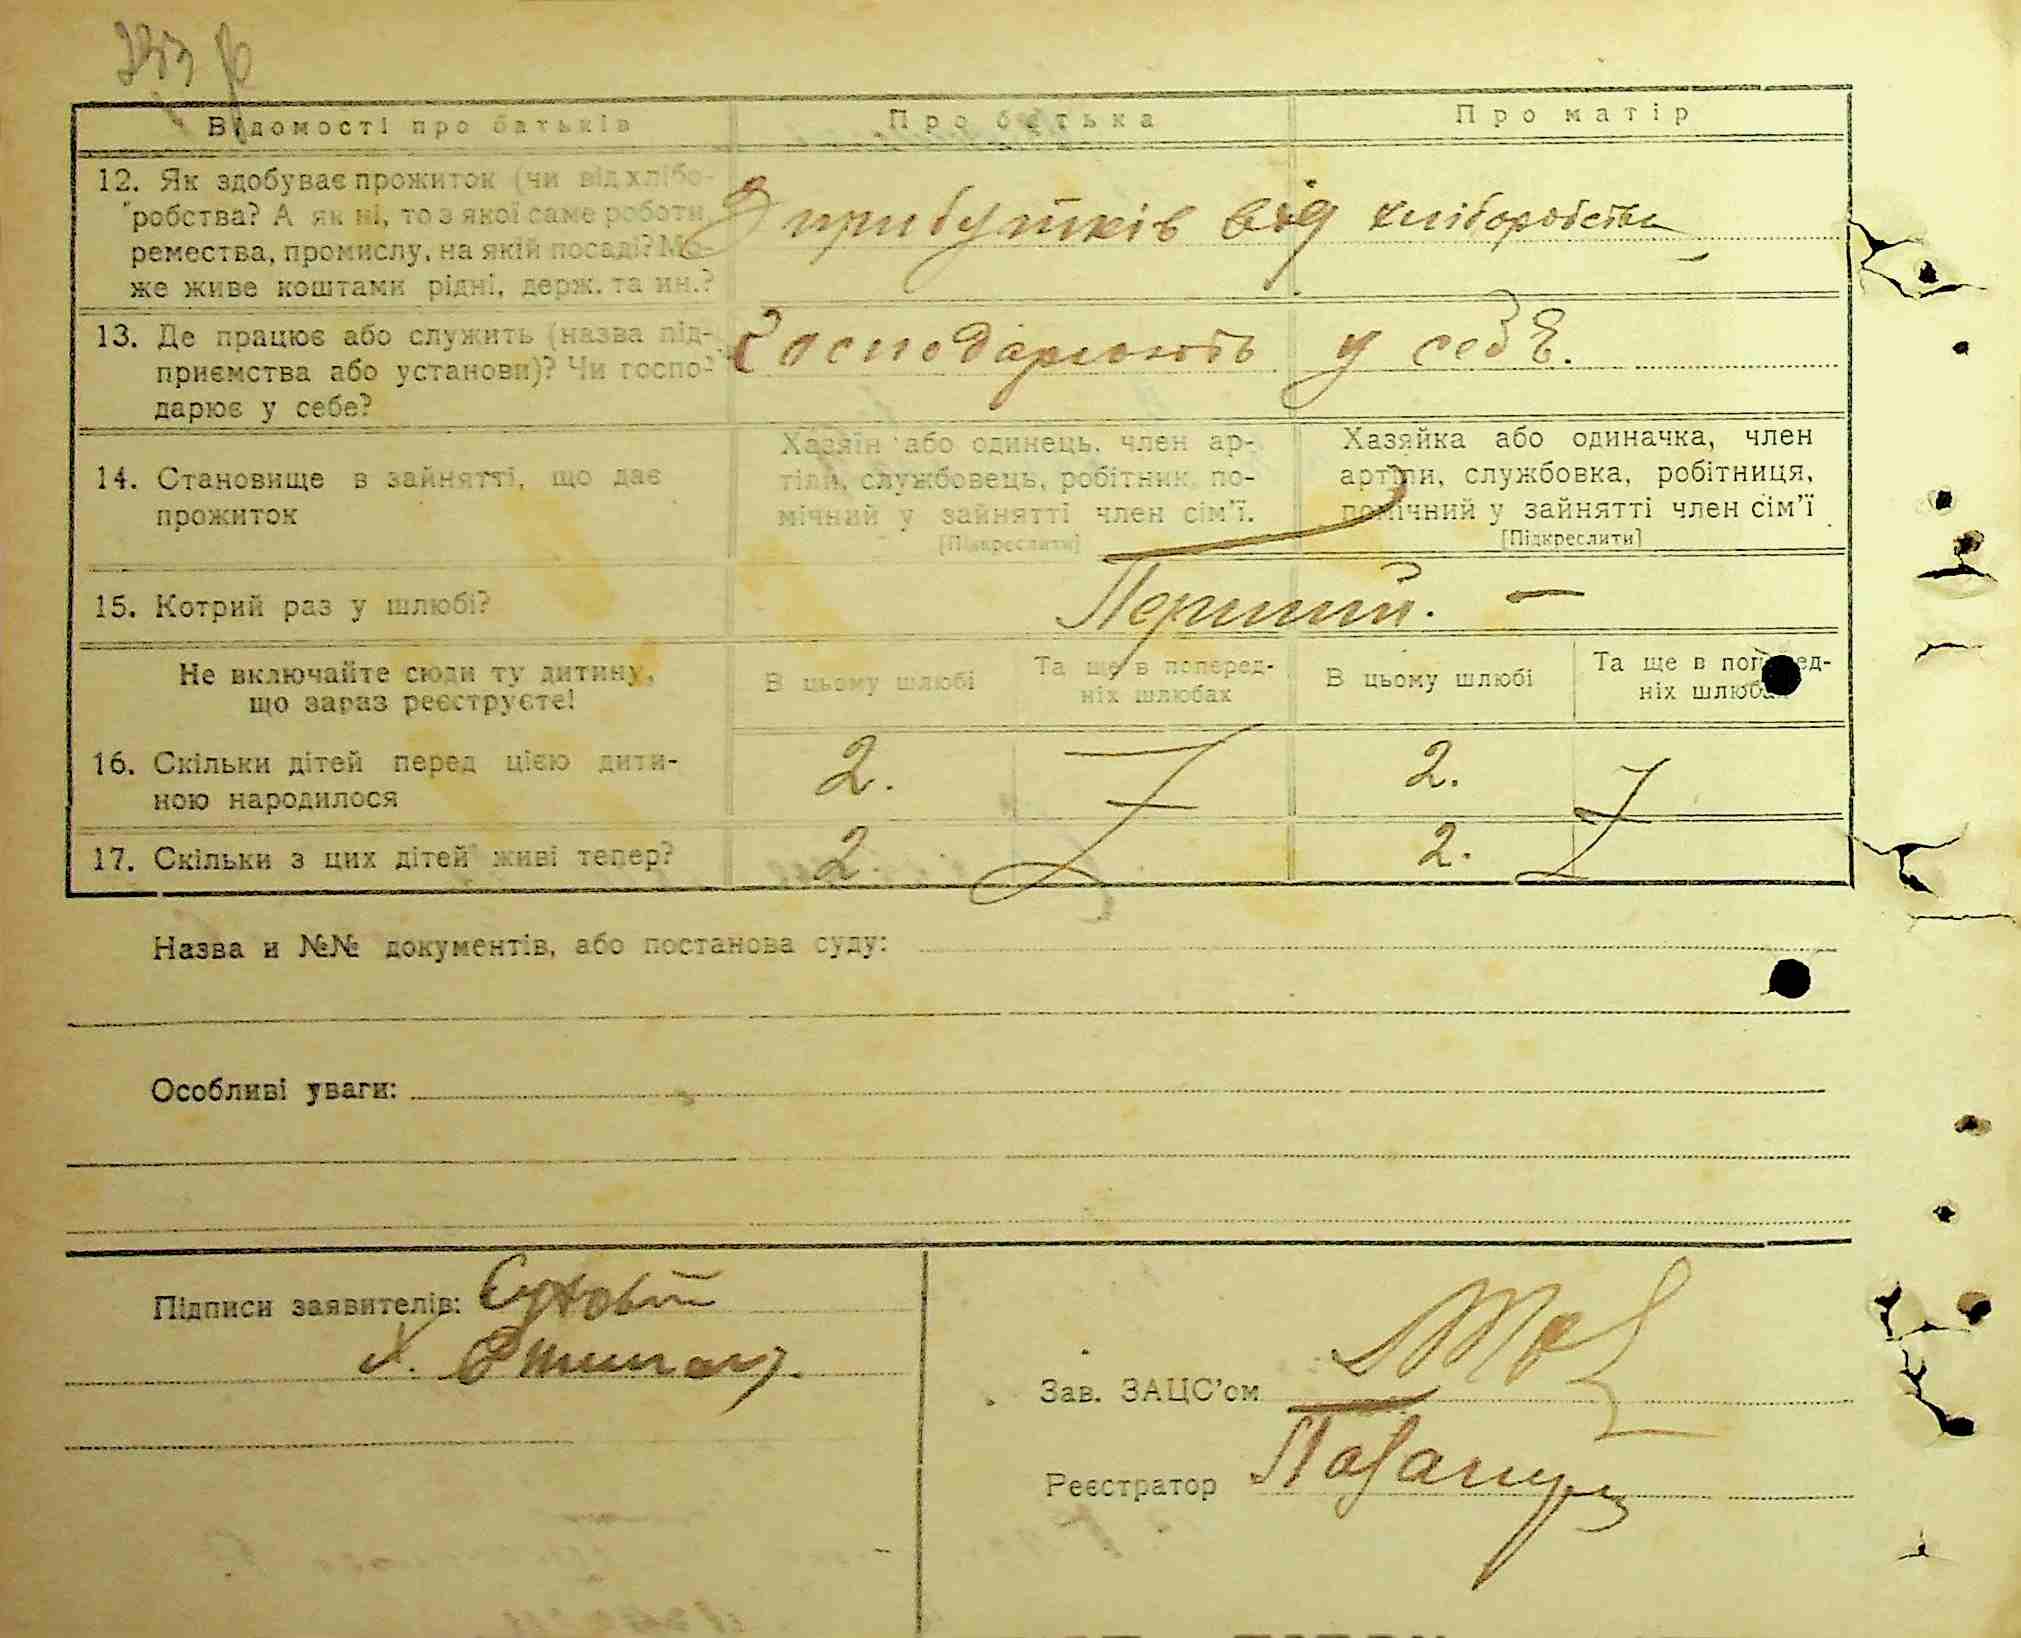 Відомості про батьків
Про батька
Про матір
12. Як здобуває прожиток (чи від хлібо-
робства? А як ні, то з якої саме роботи
ремества, промислу, на якій посаді? Мо-
же живе коштами рідні, держ. та ин.?
З прибутків від хліборобства
13. Де працює або служить (назва під-
приємства або установи)? Чи госпо-
дарює у себе?
Господарюють у себе.
14. Становище в зайнятті, що дає
прожиток
Хазяїн або одинець, член ар-
тіли, службовець, робітник, по-
мічний у зайнятті член сім'ї.
[Підкреслити]
Хазяйка або одиначка, член
артіли, службовка, робітниця,
помічний у зайнятті член сім'ї
[Підкреслити]
15. Котрий раз у шлюбі?
Перший. —
Не включайте сюди ту дитину,
що зараз реєструєте!
В цьому шлюбі
Та ще в поперед-
ніх шлюбах
В цьому шлюбі
Та ще в поперед-
ніх шлюбах
16. Скільки дітей перед цією дити-
ною народилося
2.
2.
17. Скільки з цих дітей живі тепер?
2.
2.
Назва и №№ документів, або постанова суду:
Особливі уваги:
Підписи заявителів:
Зав. ЗАЦС'ом
Реєстратор